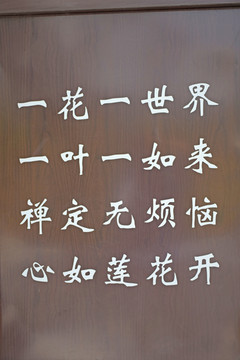 一花一世界
一叶一如来
禅定无烦恼
心如莲花开